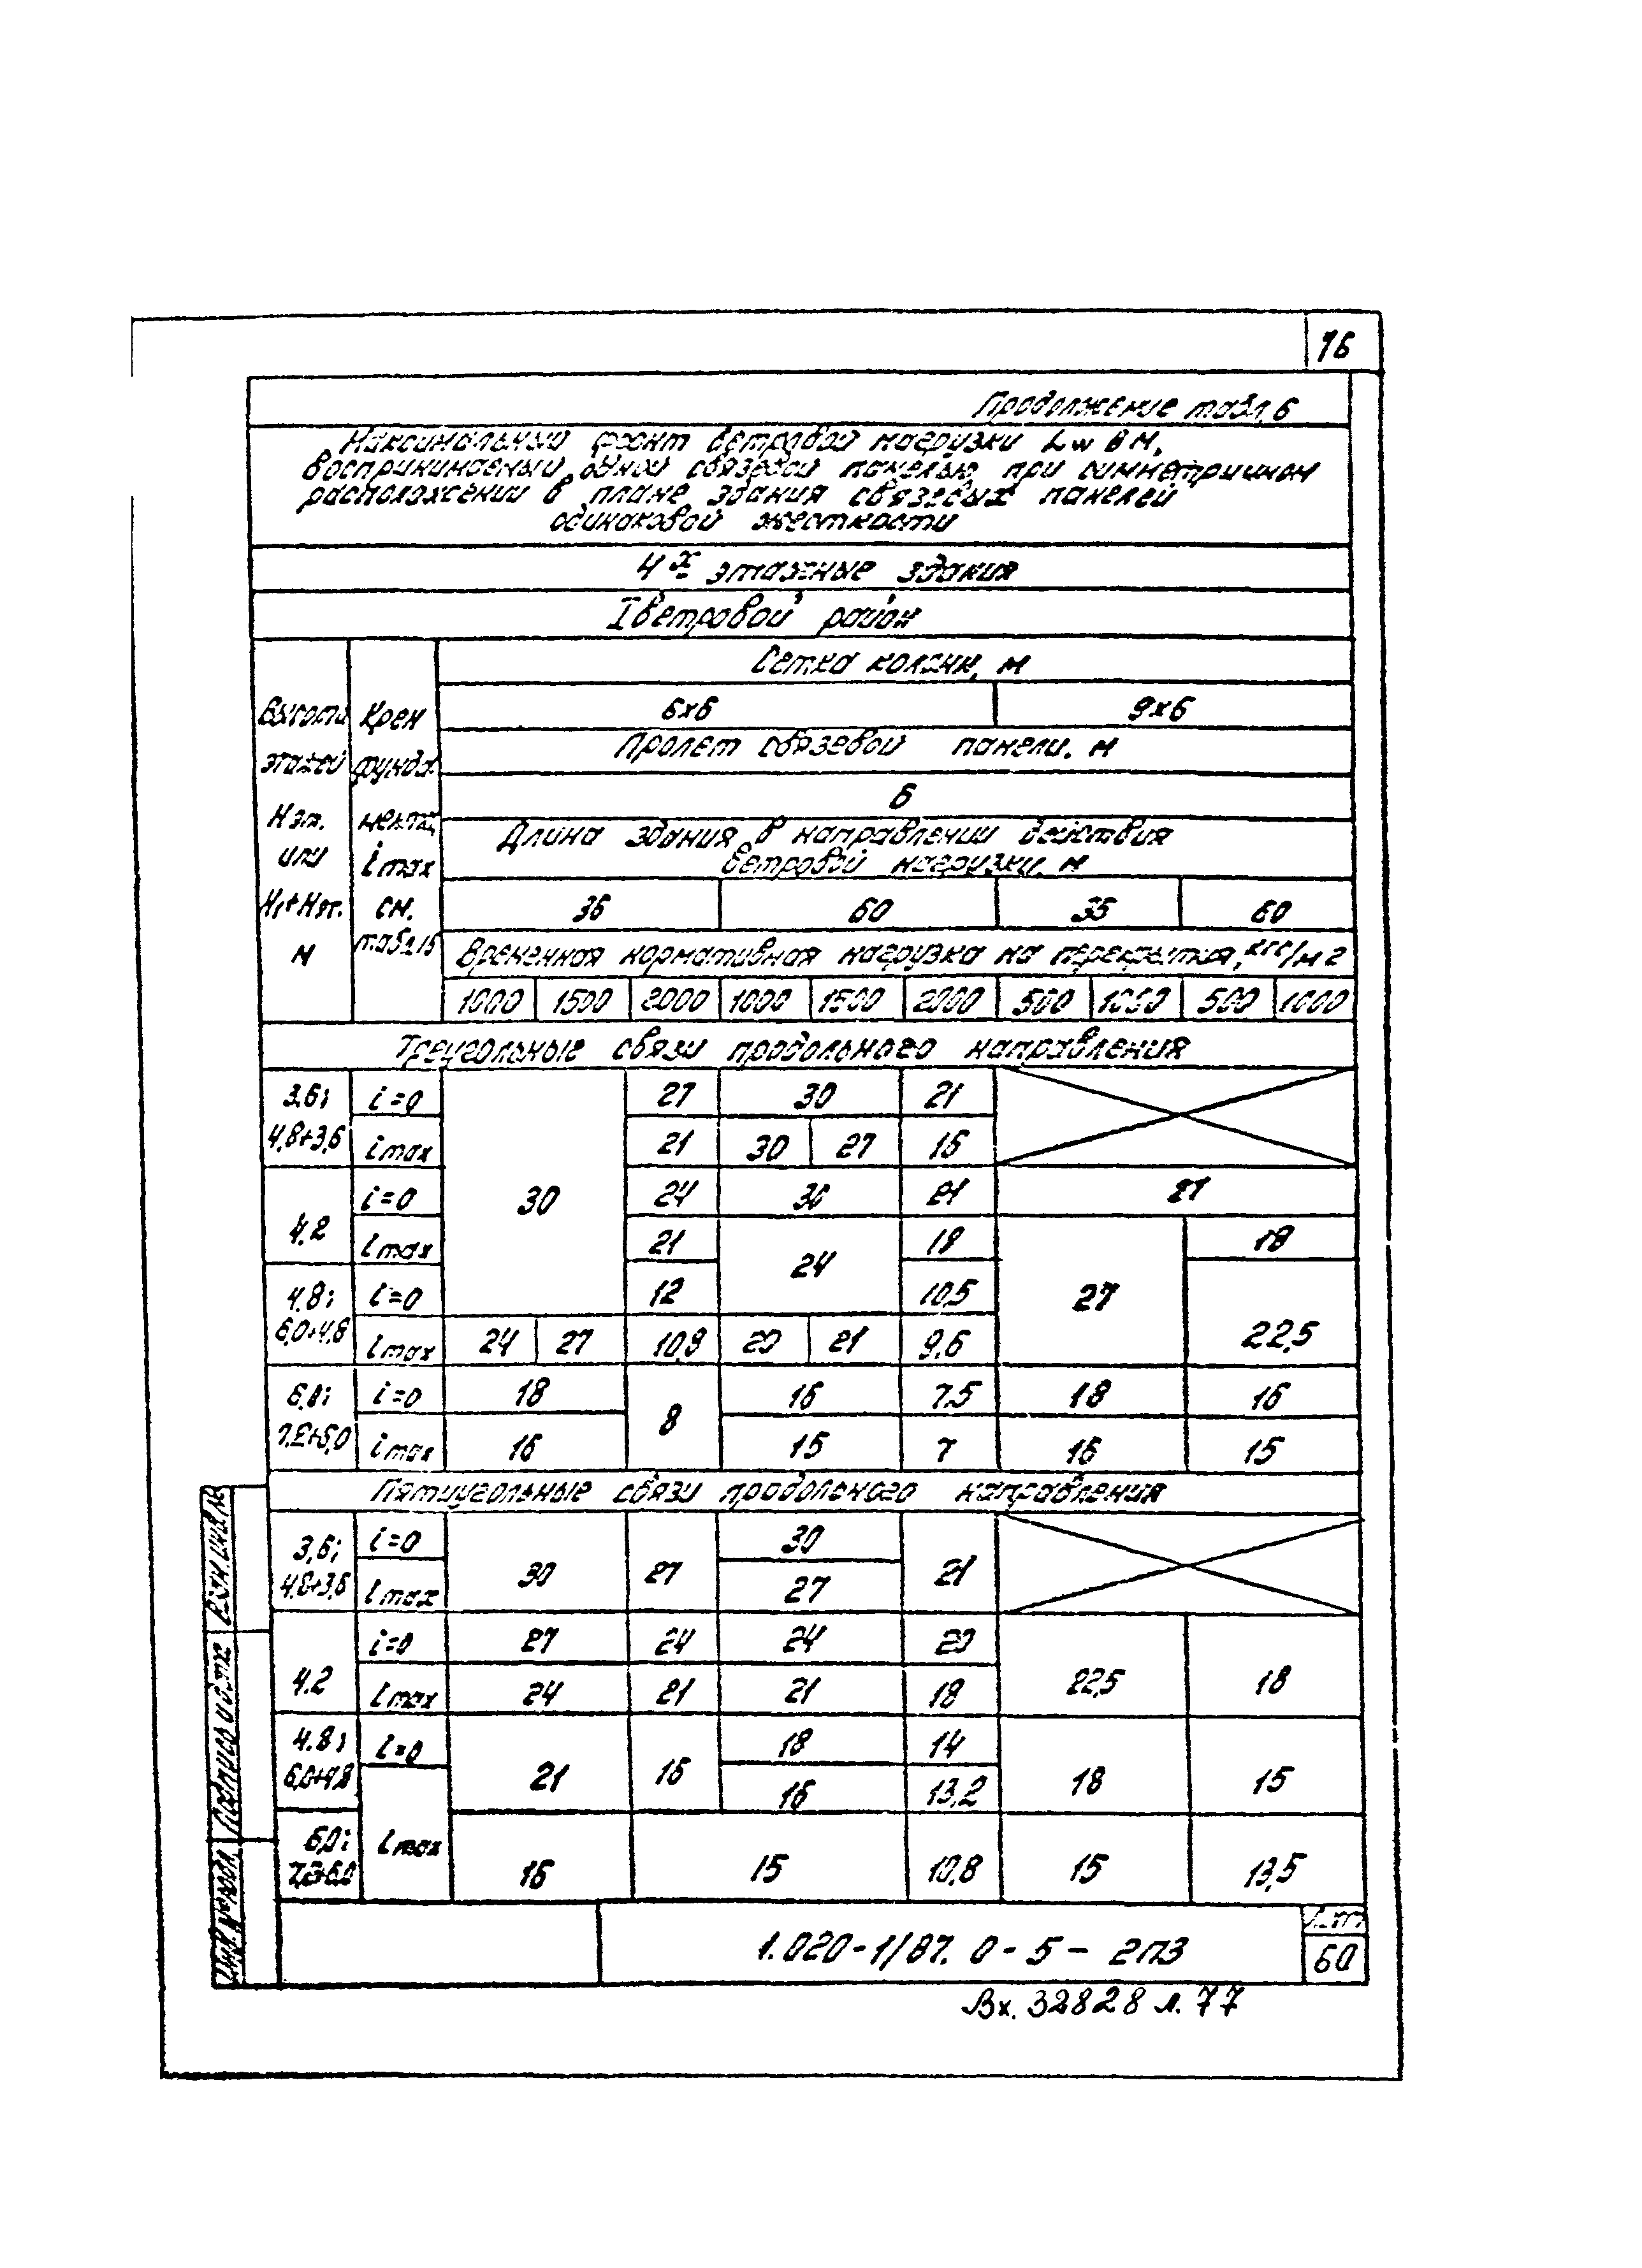 76
Продолжение табл. 6
Максимальный фронт ветровой нагрузки Lw в м,
воспринимаемый одной связевой панелью при симметричном
расположении в плане здания связевых панелей
одинаковой жесткости
4х этажные здания
I ветровой район
Высота этажей Нэт. или Н1+Нэт. м
Крен фундамента imax см. табл. 15
Сетка колонн, м
6х6 9х6
Пролет связевой панели, м
6
Длина здания в направлении действия
ветровой нагрузки, м
36 60 36 60
Временная нормативная нагрузка на перекрытия, кгс/м2
1000 1500 2000 1000 1500 2000 500 1000 500 1000
Треугольные связи продольного направления
3.6; i=0 27 30 21
4,8+3,6 imax 21 30 27 15
30
4.2 i=0 24 30 21 21
imax 21 24 18 18
4.8; i=0 12 10,5 27
6,0+4,8 imax 24 27 10,8 20 21 9,6 22,5
6,0; i=0 18 8 16 7.5 18 16
7,2+6,0 imax 16 15 7 16 15
Пятиугольные связи продольного направления
3,6; i=0 30
4,8+3,6 imax 30 27 27 21
4.2 i=0 27 24 24 20
imax 24 21 21 18 22,5 18
4.8; i=0 18 14
6,0+4,8 21 16 16 13,2 18 15
6,0;
7,2+6,0 imax 16 15 10,8 15 13,5
Инв.№ подл. Подпись и дата Взам.инв.№
1.020-1/87. 0-5-2ПЗ
Лист
60
Вх. 32828 л. 77